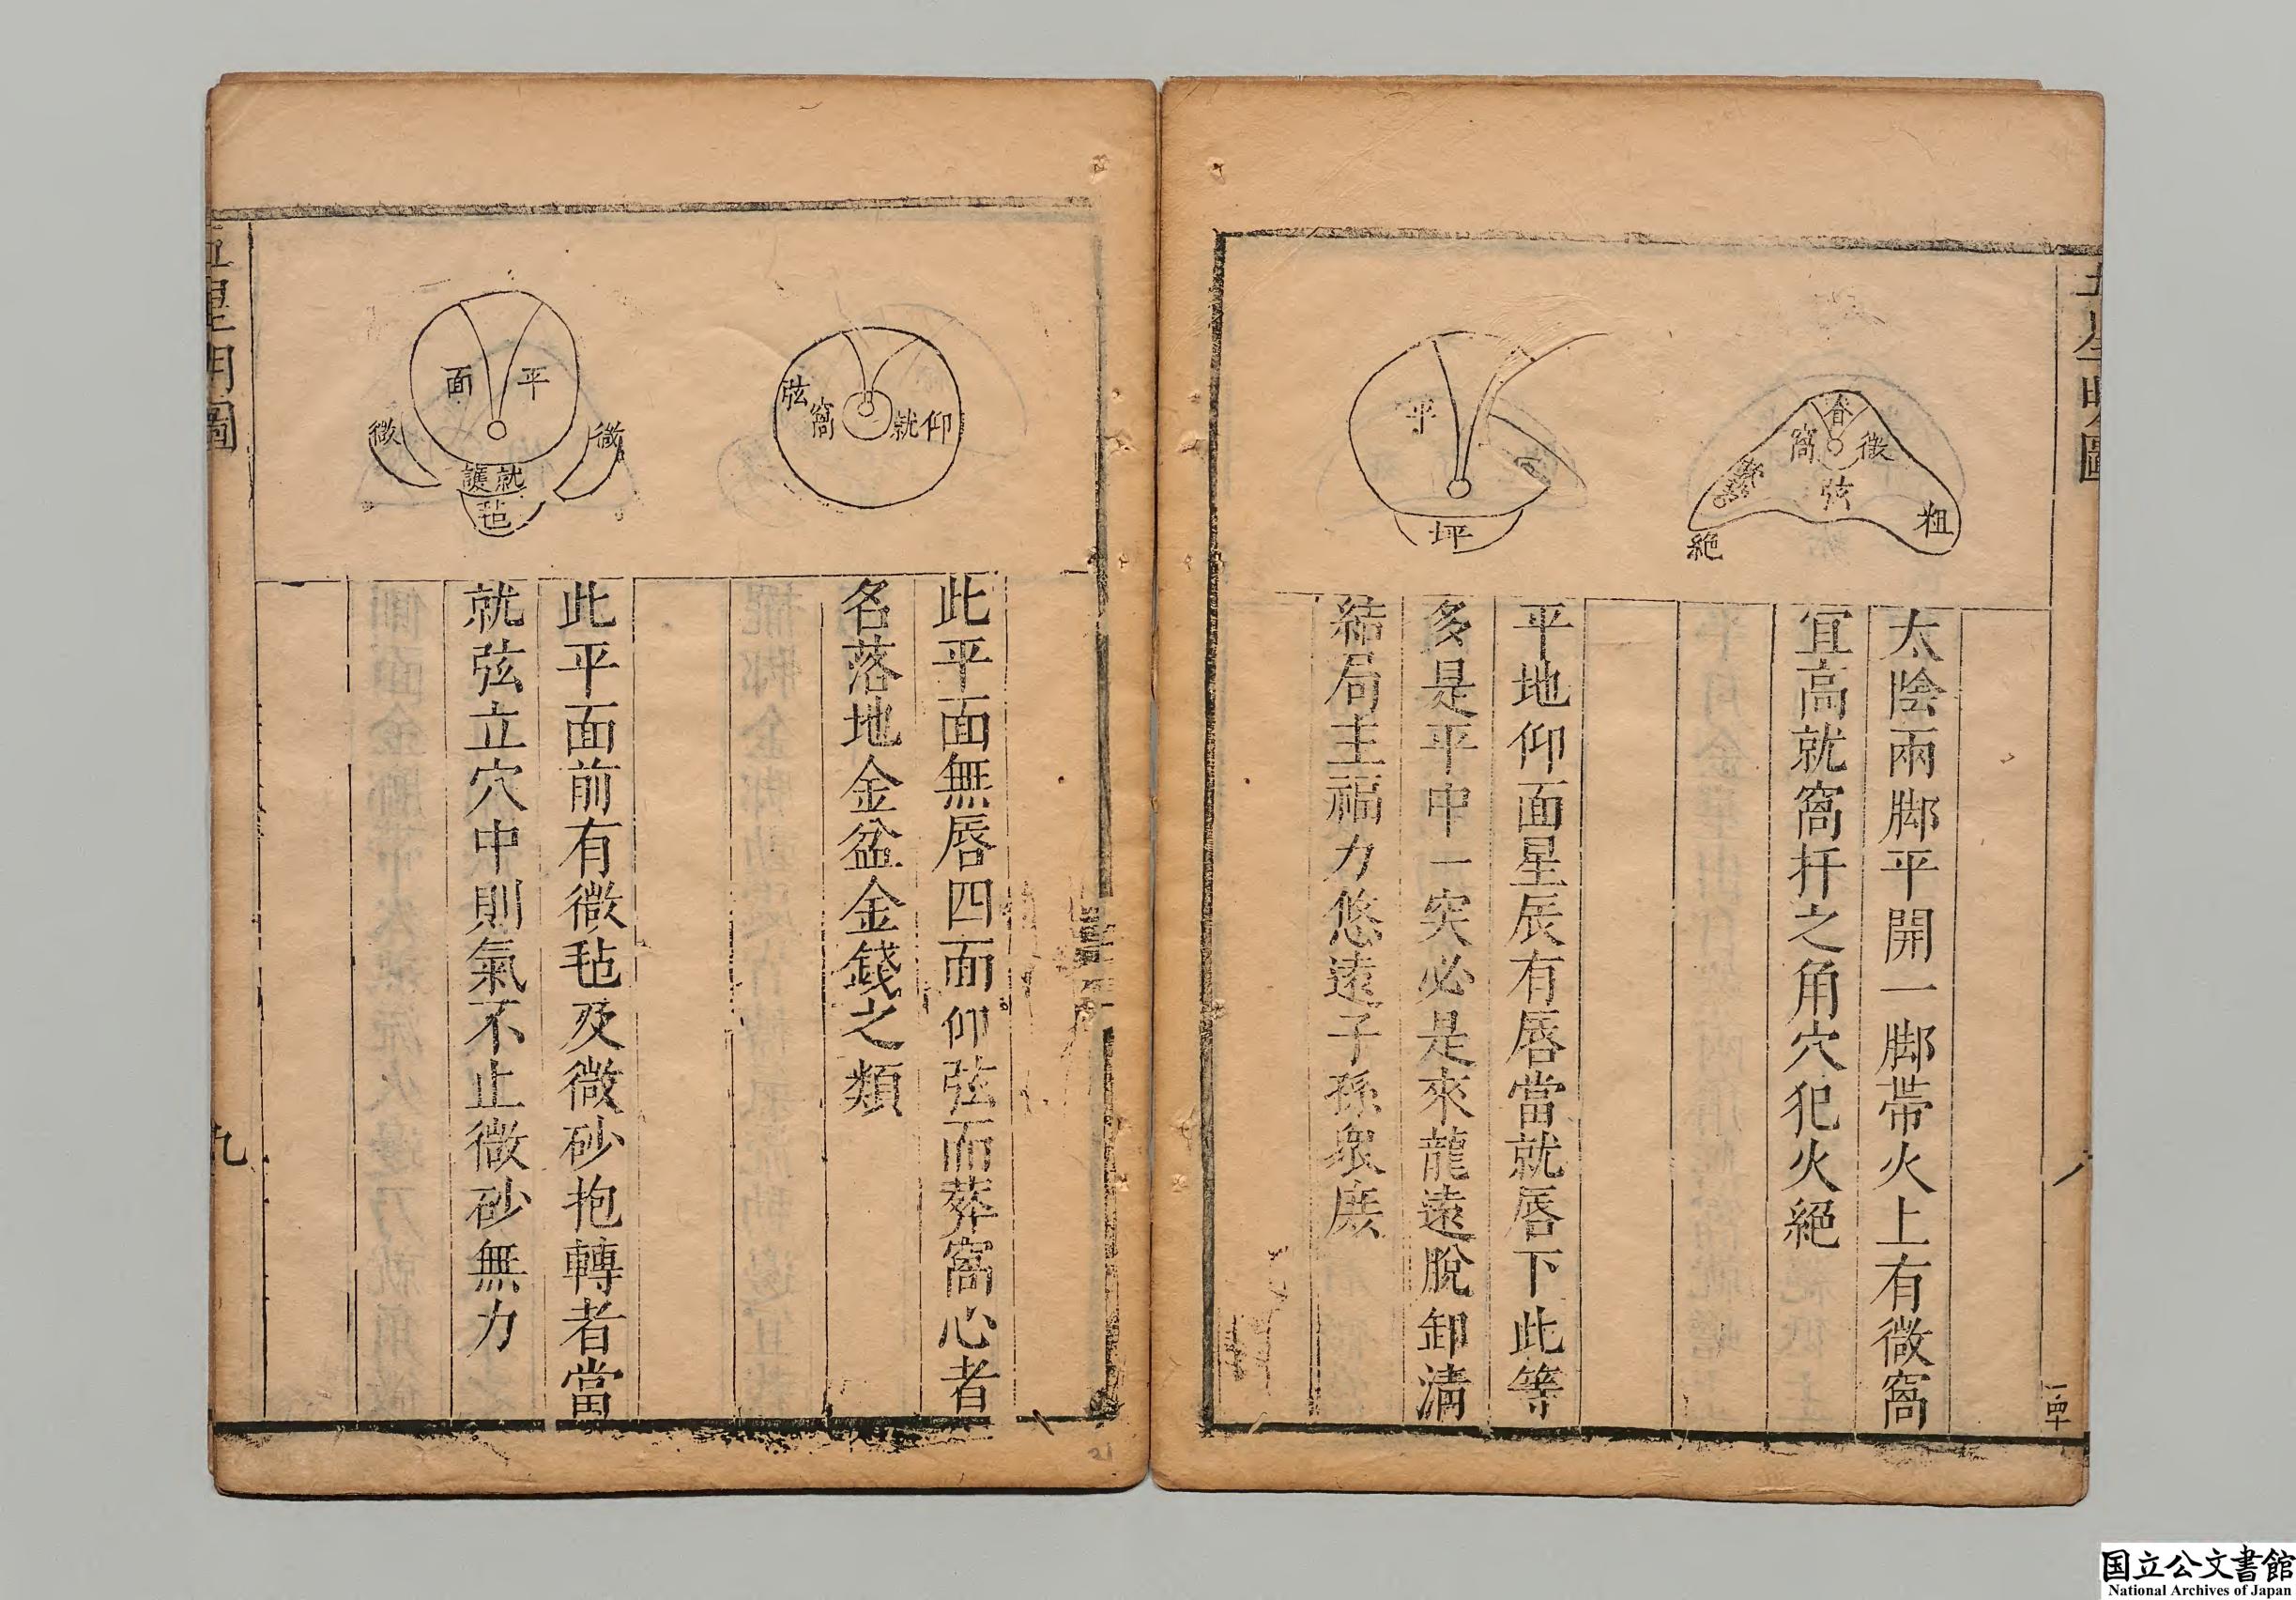 五星明圖
脊
微
窩
弦
粗
絕
太陰兩脚平開一脚帶火上有微窩
宜高就窩扦之角穴犯火絕
一里
平
坪
平地仰面星辰有唇當就唇下此等
多是平中一突必是來龍遠脫卸清
結局主福力悠遠子孫衆庶
仰就
窩
弦
此平面無唇四面仰弦而葬窩心者
名落地金盆金錢之類
平面
微
微
就護
毡
此平面前有微毡及微砂抱轉者當
就弦立穴中則氣不止微砂無力
五星明圖
九
21
国立公文書館
National Archives of Japan